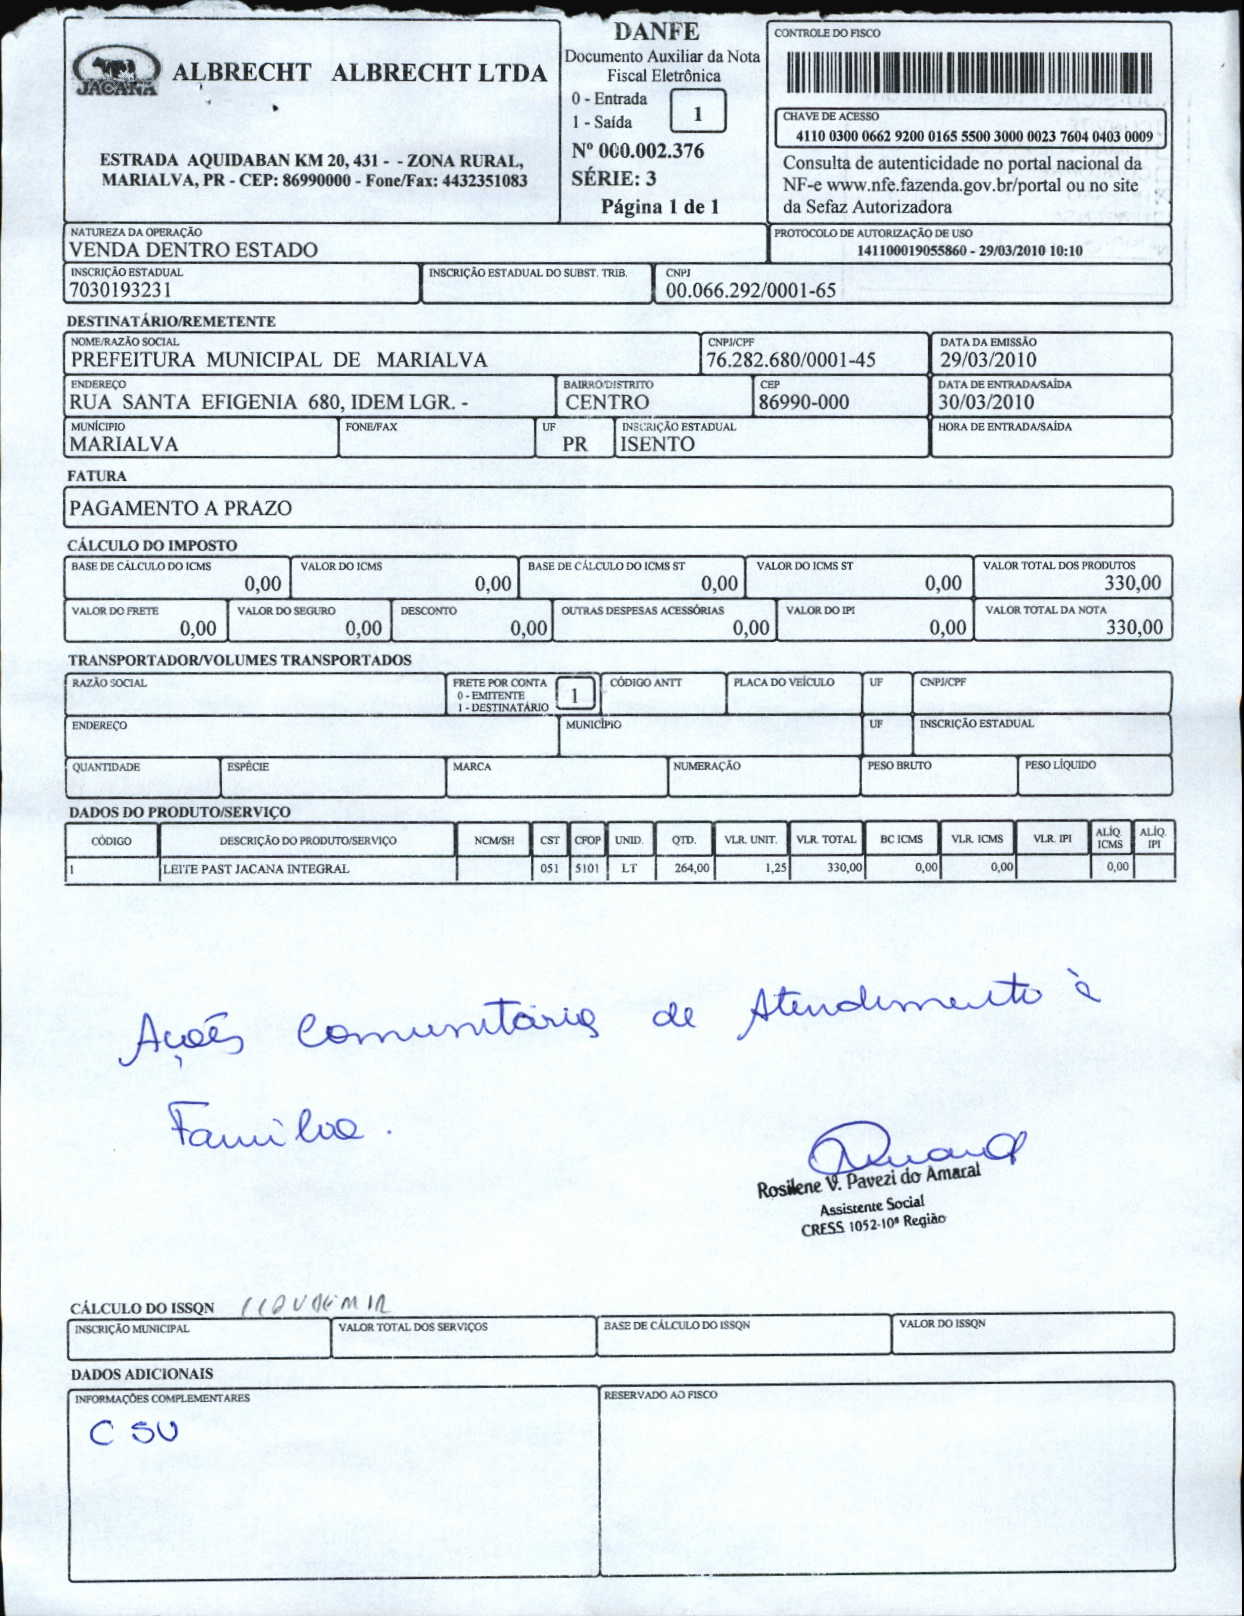 JACANÁ
ALBRECHT ALBRECHT LTDA
ESTRADA AQUIDABAN KM 20, 431 - - ZONA RURAL,
MARIALVA, PR - CEP: 86990000 - Fone/Fax: 4432351083
DANFE
Documento Auxiliar da Nota
Fiscal Eletrônica
0 - Entrada
1 - Saída
1
Nº 000.002.376
SÉRIE: 3
Página 1 de 1
CONTROLE DO FISCO
CHAVE DE ACESSO
4110 0300 0662 9200 0165 5500 3000 0023 7604 0403 0009
Consulta de autenticidade no portal nacional da
NF-e www.nfe.fazenda.gov.br/portal ou no site
da Sefaz Autorizadora
NATUREZA DA OPERAÇÃO
VENDA DENTRO ESTADO
PROTOCOLO DE AUTORIZAÇÃO DE USO
141100019055860 - 29/03/2010 10:10
INSCRIÇÃO ESTADUAL
7030193231
INSCRIÇÃO ESTADUAL DO SUBST. TRIB.
CNPJ
00.066.292/0001-65
DESTINATÁRIO/REMETENTE
NOME/RAZÃO SOCIAL
PREFEITURA MUNICIPAL DE MARIALVA
CNPJ/CPF
76.282.680/0001-45
DATA DA EMISSÃO
29/03/2010
ENDEREÇO
RUA SANTA EFIGENIA 680, IDEM LGR. -
BAIRRO/DISTRITO
CENTRO
CEP
86990-000
DATA DE ENTRADA/SAÍDA
30/03/2010
MUNÍCIPIO
MARIALVA
FONE/FAX
UF
PR
INSCRIÇÃO ESTADUAL
ISENTO
HORA DE ENTRADA/SAÍDA
FATURA
PAGAMENTO A PRAZO
CÁLCULO DO IMPOSTO
BASE DE CÁLCULO DO ICMS
0,00
VALOR DO ICMS
0,00
BASE DE CÁLCULO DO ICMS ST
0,00
VALOR DO ICMS ST
0,00
VALOR TOTAL DOS PRODUTOS
330,00
VALOR DO FRETE
0,00
VALOR DO SEGURO
0,00
DESCONTO
0,00
OUTRAS DESPESAS ACESSÓRIAS
0,00
VALOR DO IPI
0,00
VALOR TOTAL DA NOTA
330,00
TRANSPORTADOR/VOLUMES TRANSPORTADOS
RAZÃO SOCIAL
FRETE POR CONTA
0 - EMITENTE
1 - DESTINATÁRIO
1
CÓDIGO ANTT
PLACA DO VEÍCULO
UF
CNPJ/CPF
ENDEREÇO
MUNICÍPIO
UF
INSCRIÇÃO ESTADUAL
QUANTIDADE
ESPÉCIE
MARCA
NUMERAÇÃO
PESO BRUTO
PESO LÍQUIDO
DADOS DO PRODUTO/SERVIÇO
CÓDIGO DESCRIÇÃO DO PRODUTO/SERVIÇO NCM/SH CST CFOP UNID. QTD. VLR. UNIT. VLR. TOTAL BC ICMS VLR. ICMS VLR. IPI ALÍQ. ICMS ALÍQ. IPI
1 LEITE PAST JACANA INTEGRAL 051 5101 LT 264,00 1,25 330,00 0,00 0,00 0,00
Ações Comunitárias de Atendimento à
Família.
Rosilene V. Pavezi do Amaral
Assistente Social
CRESS 1052-10ª Região
CÁLCULO DO ISSQN
INSCRIÇÃO MUNICIPAL
VALOR TOTAL DOS SERVIÇOS
BASE DE CÁLCULO DO ISSQN
VALOR DO ISSQN
DADOS ADICIONAIS
INFORMAÇÕES COMPLEMENTARES
CSU
RESERVADO AO FISCO